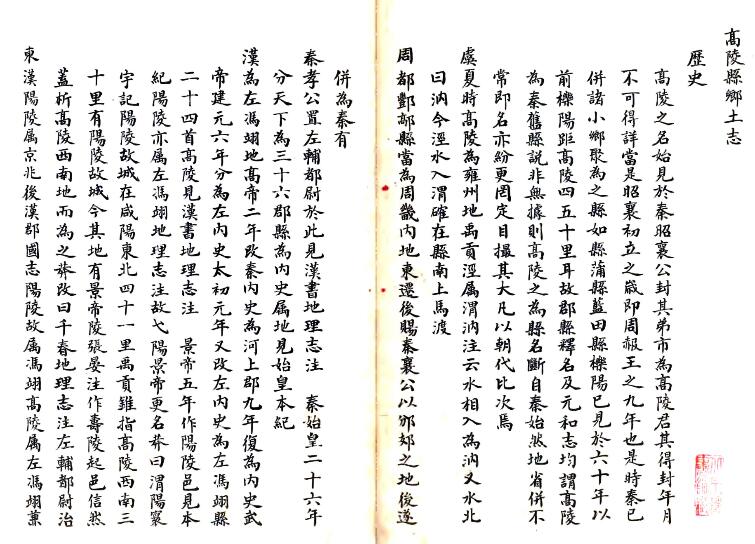 高陵縣鄉土志
歷史
高陵之名始見於秦昭襄公封其弟市為高陵君其得封年月
不可得詳當是昭襄初立之歲即周赧王之九年也是時秦已
併諸小鄉聚為之縣如縣蒲縣藍田縣櫟陽已見於六十年以
前櫟陽距高陵四五十里耳故郡縣釋名及元和志均謂高陵
為秦舊縣說非無據則高陵之為縣名斷自秦始然地省併不
常即名亦紛更罔定目撮其大凡以朝代比次焉
虞夏時高陵為雍州地禹貢涇属渭汭注云水相入為汭又水北
曰汭今涇水入渭確在縣南上馬渡
周都酆鄗縣當為周畿內地東遷後賜秦襄公以邠郊之地後遂
併為秦有
秦孝公置左輔都尉於此見漢書地理志注 秦始皇二十六年
分天下為三十六郡縣為內史属地見始皇本紀
漢為左馮翊地高帝二年改秦內史為河上郡九年復為內史武
帝建元六年分為左內史太初元年又改左內史為左馮翊縣
二十四首高陵見漢書地理志注 景帝五年作陽陵邑見本
紀陽陵亦属左馮翊地理志注故弋陽景帝更名莽曰渭陽寰
宇記陽陵故城在咸陽東北四十一里禹貢錐指高陵西南三
十里有陽陵故城今其地有景帝陵張晏注作壽陵起邑信然
蓋析高陵西南地而為之莽改曰千春地理志注左輔都尉治
東漢陽陵属京兆後漢郡國志陽陵故属馮翊高陵属左馮翊蒹